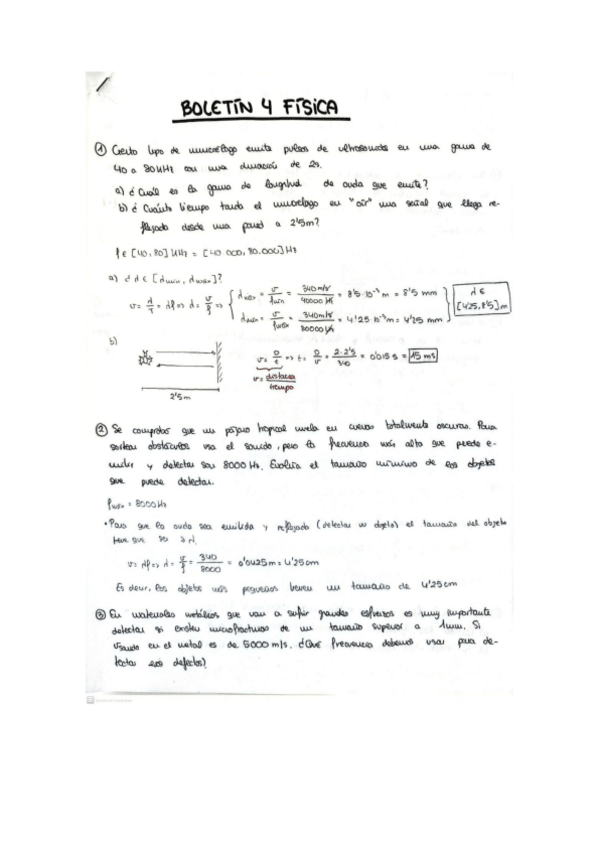 BOLETÍN 4 FÍSICA
① Cierto tipo de murciélago emite pulsos de ultrasonido en una gama de
40 a 80 kHz con una duración de 2s.
a) ¿Cuál es la gama de longitud de onda que emite?
b) ¿Cuánto tiempo tarda el murciélago en "oir" una señal que llega re-
flejada desde una pared a 2'5m?
f ∈ [40, 80] kHz = [40 000, 80.000] Hz
a) ¿ λ ∈ [λmin, λmax]?
v = λ/T = λf => λ = v/f => { λmax = v/fmin = 340m/s / 40000 Hz = 8'5·10⁻³ m = 8'5 mm
λmin = v/fmax = 340m/s / 80000 Hz = 4'25·10⁻³ m = 4'25 mm } λ ∈ [4'25, 8'5] m
b)
v = D/t => t = D/v = 2·2'5/340 = 0'015 s = 15 ms
v = distancia/tiempo
2'5m
② Se comprobó que un pájaro tropical vuela en cuevas totalmente oscuras. Para
sortear obstáculos usa el sonido, pero la frecuencia más alta que puede e-
mitir y detectar son 8000 Hz. Evalúa el tamaño mínimo de los objetos
que puede detectar.
fmax = 8000 Hz
• Para que la onda sea emitida y reflejada (detectar un objeto) el tamaño del objeto
tiene que ser ≥ λ.
v = λf => λ = v/f = 340/8000 = 0'0425 m = 4'25 cm
Es decir, los objetos más pequeños tienen un tamaño de 4'25 cm
③ En materiales metálicos que van a sufrir grandes esfuerzos es muy importante
detectar si existen microfracturas de un tamaño superior a 1mm. Si
vsonido en el metal es de 5000 m/s. ¿Qué frecuencia debemos usar para de-
tectar esos defectos?